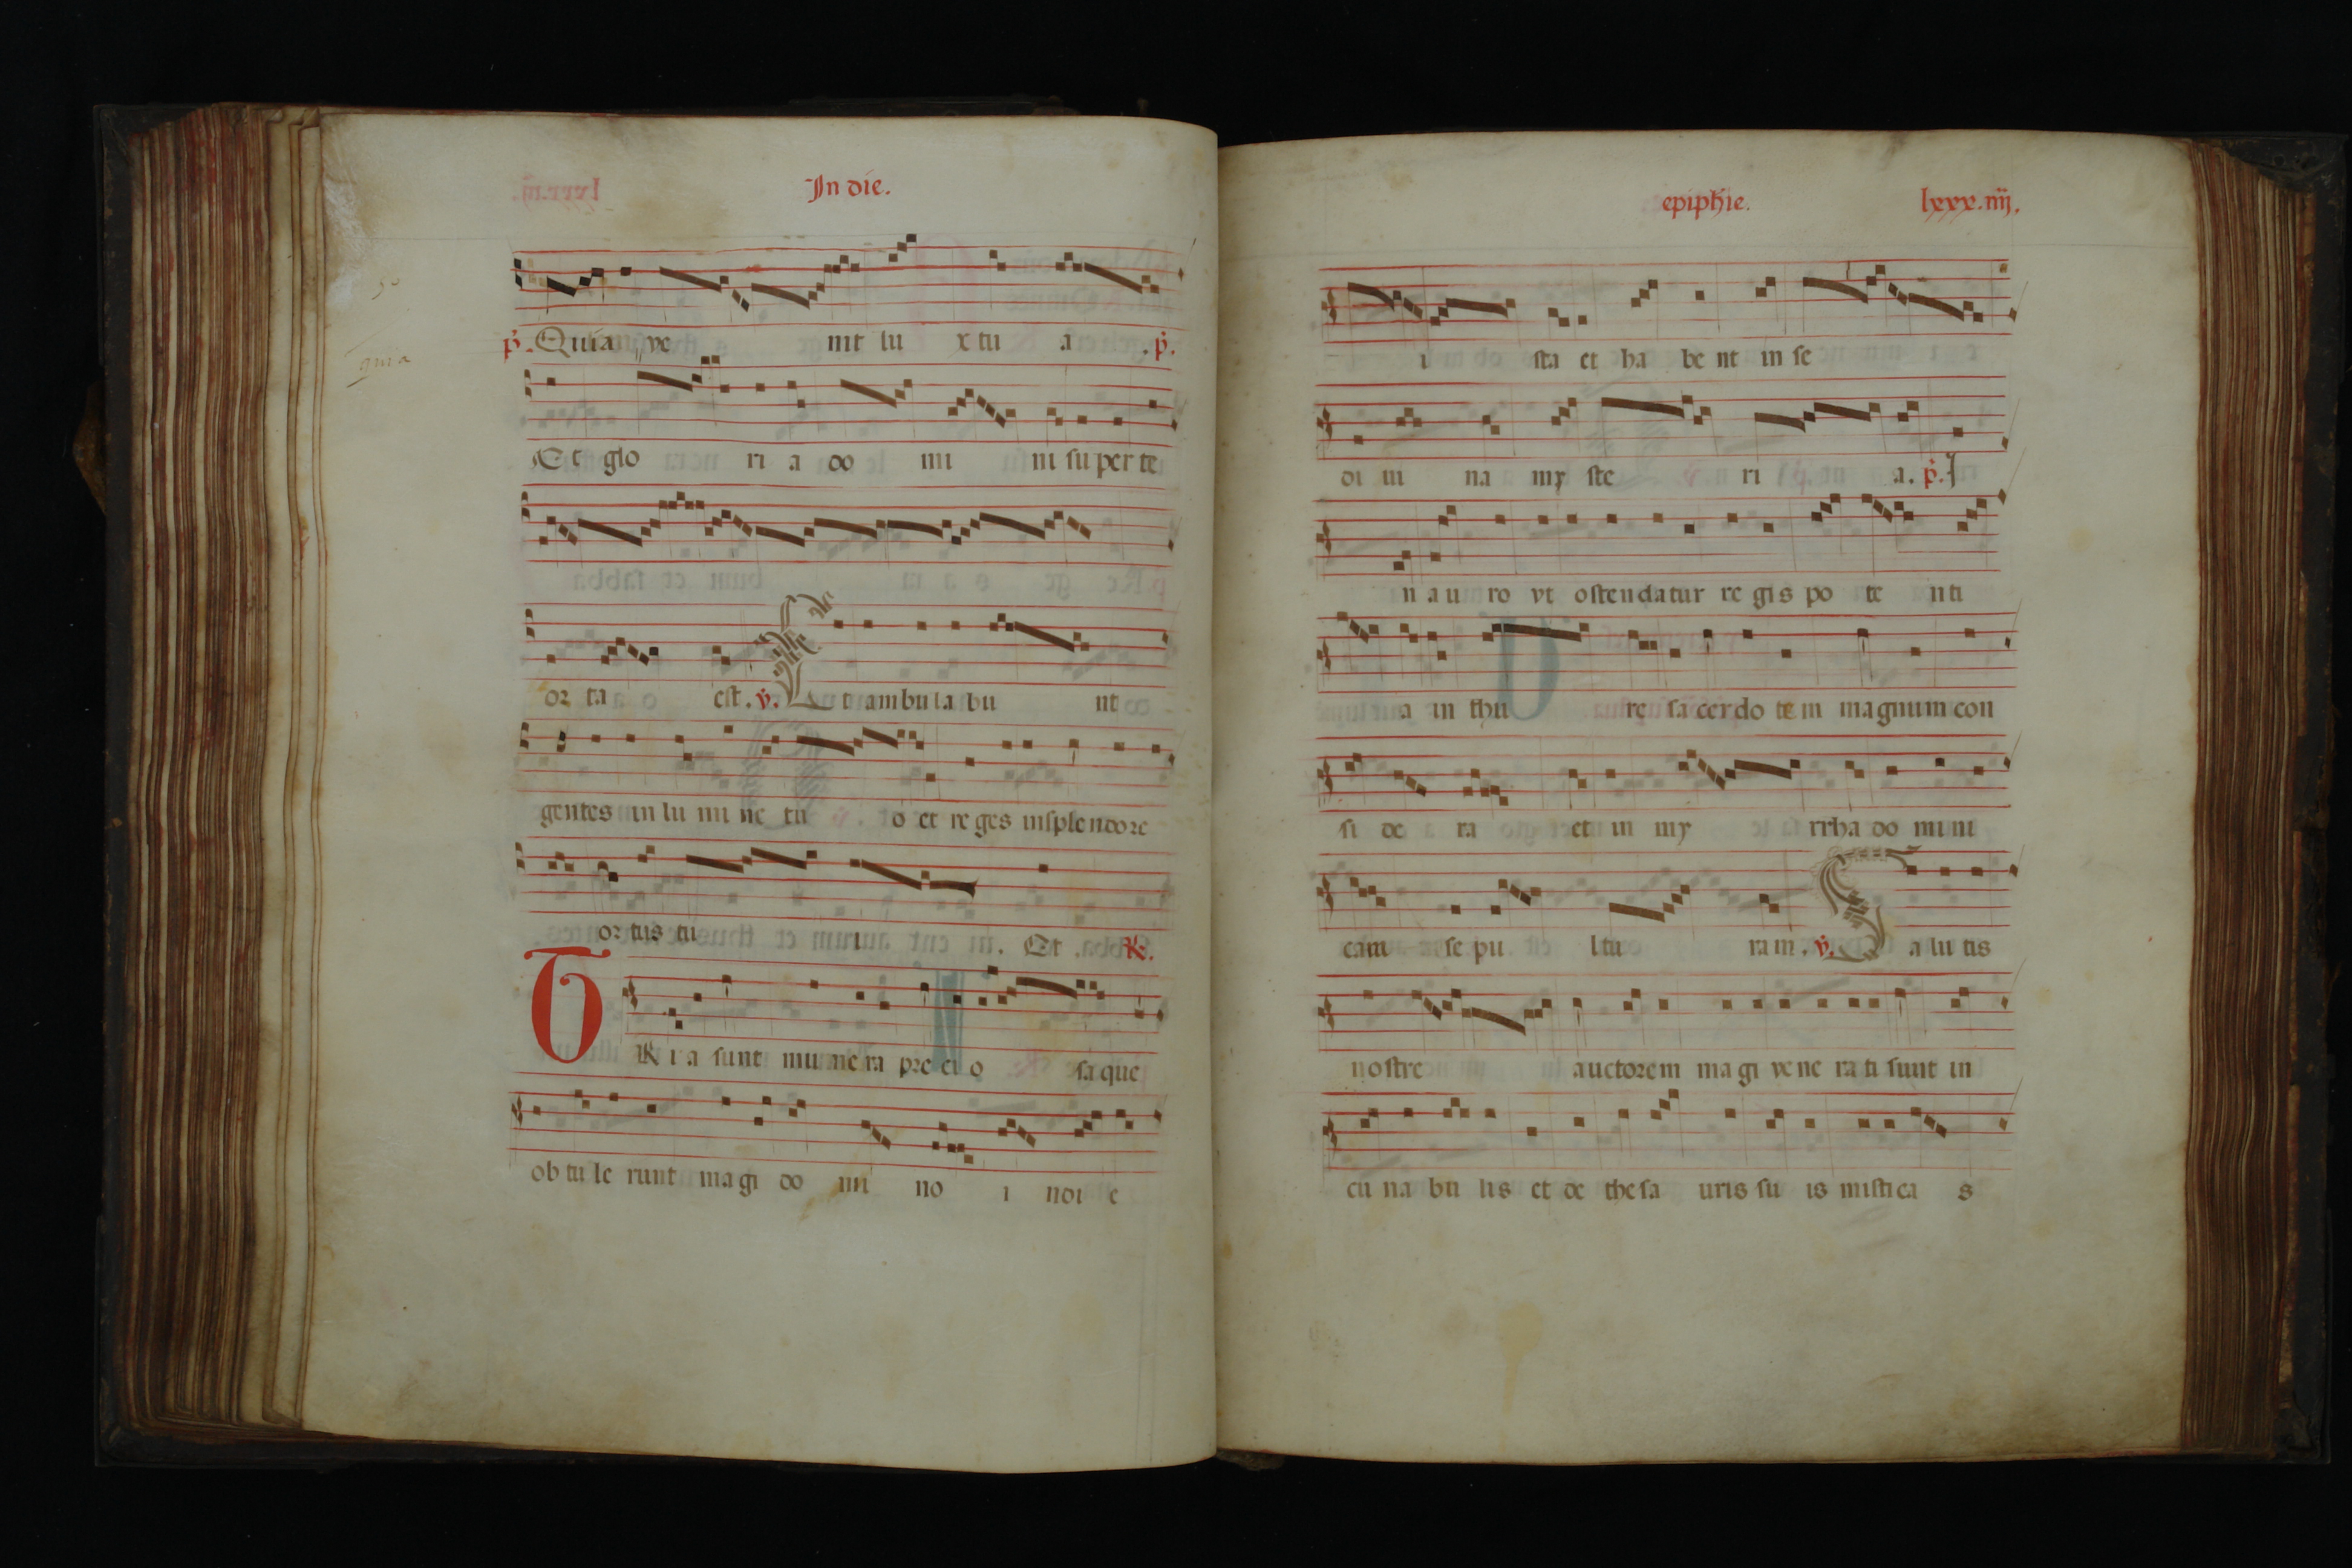 In die.
p̃. Quia ve nit lu x tu a . p̃.
quia
Et glo ri a do mi ni super te
or ta est. v̇. Et ambula bu nt
gentes in lu mi ne tu o et re ges insplendore
or tus tu i . Et . R̃.
TRia sunt mu ne ra pre ci o sa que
ob tu le runt ma gi do mi no i n di e
epiphie. lxxx.iiij.
i sta et ha be nt in se
di ui na my ste ri a. p̃.I
n au ro vt ostendatur re gis po te nti
a in thu re sa cer do te m magnum con
si de ra et in my rrha do mi ni
cam se pu ltu ram. v̇. Salutis
nostre auctorem ma gi vene ra ti sunt in
cu na bu lis et de the sa uris su is mistica s